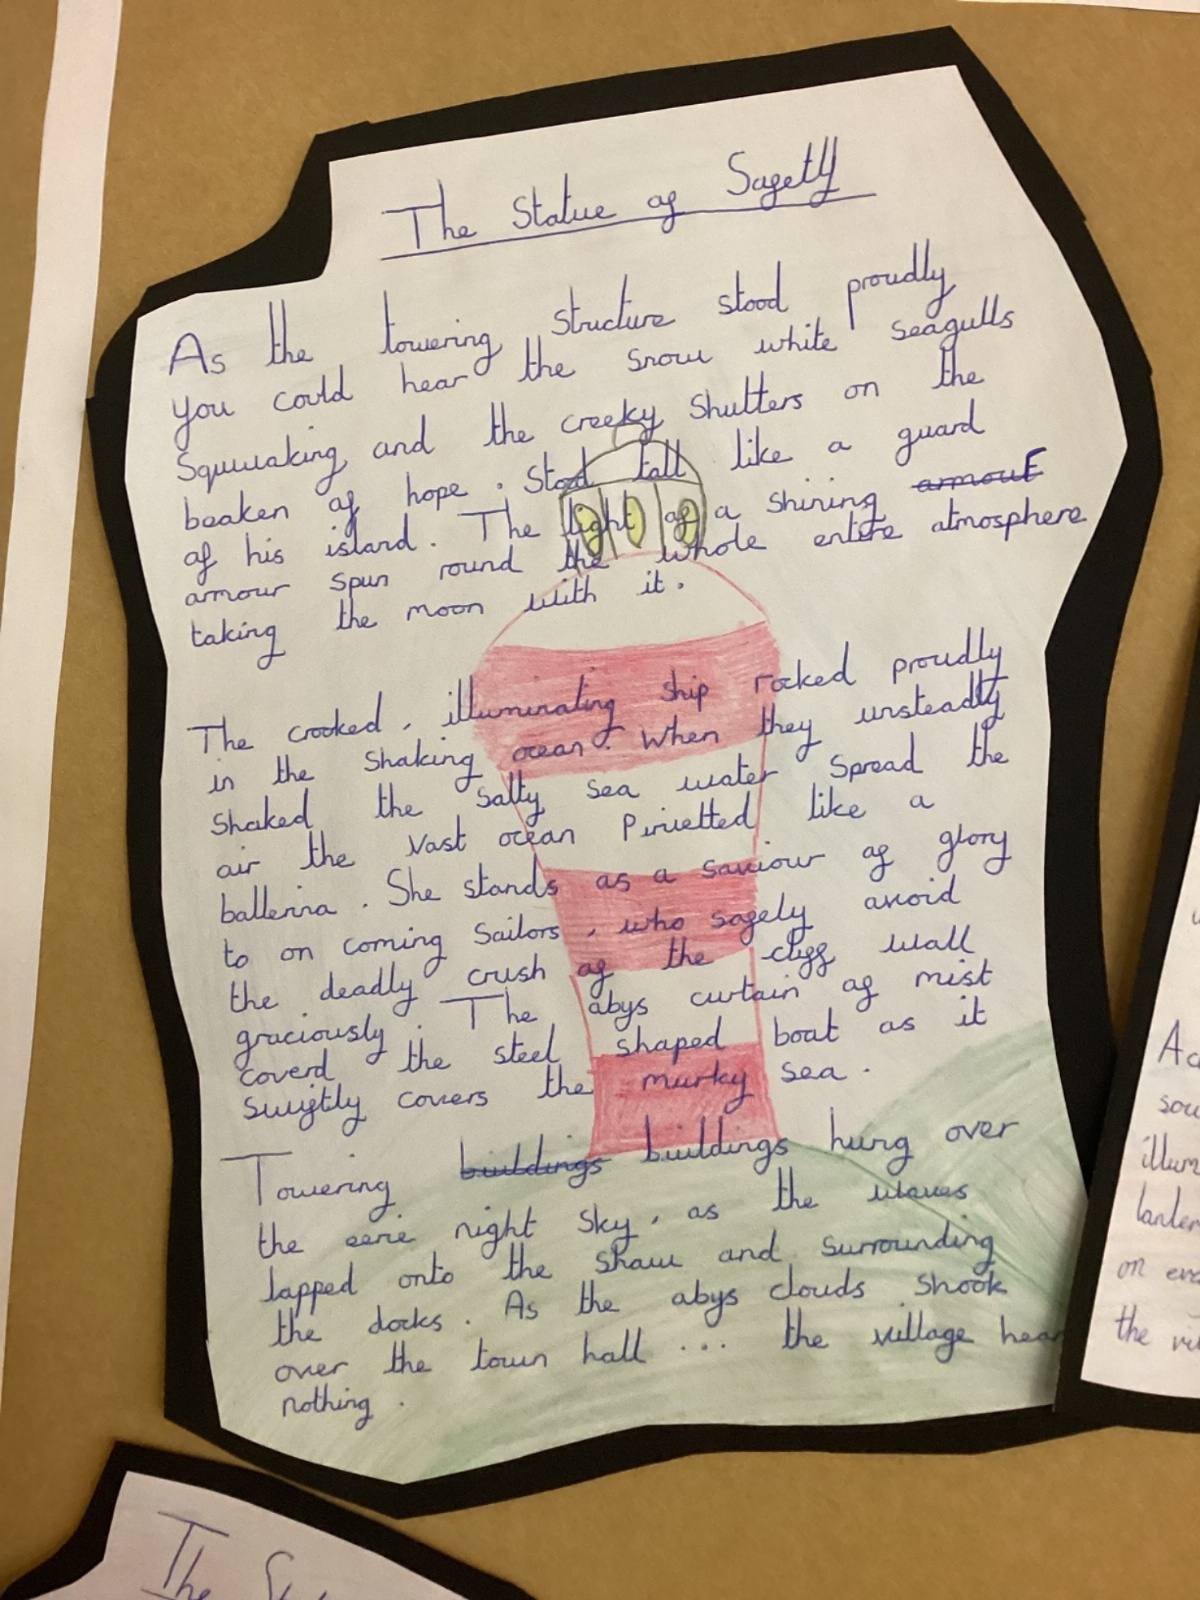 The Statue of Safety
As the towering structure stood proudly
you could hear the snow white seagulls
Squwaking and the creeky shutters on the
beaken of hope. Stood tall like a guard
of his island. The light of a shining armour
armour spun round the whole entire atmosphere
taking the moon with it.
The crooked, illuminating ship rocked proudly
in the shaking ocean. When they unsteadly
shaked the salty sea water spread the
air the vast ocean Piruetted like a
ballerina. She stands as a saviour of glory
to on coming Sailors, who safely avoid
the deadly crush of the cliff wall
graciously. The abys curtain of mist
coverd the steel shaped boat as it
swiftly covers the murky sea.
Towering buildings buildings hung over
the eerie night sky, as the waves
lapped onto the shaw and surrounding
the docks. As the abys clouds shook
over the town hall ... the village hear
nothing.
The
the
on